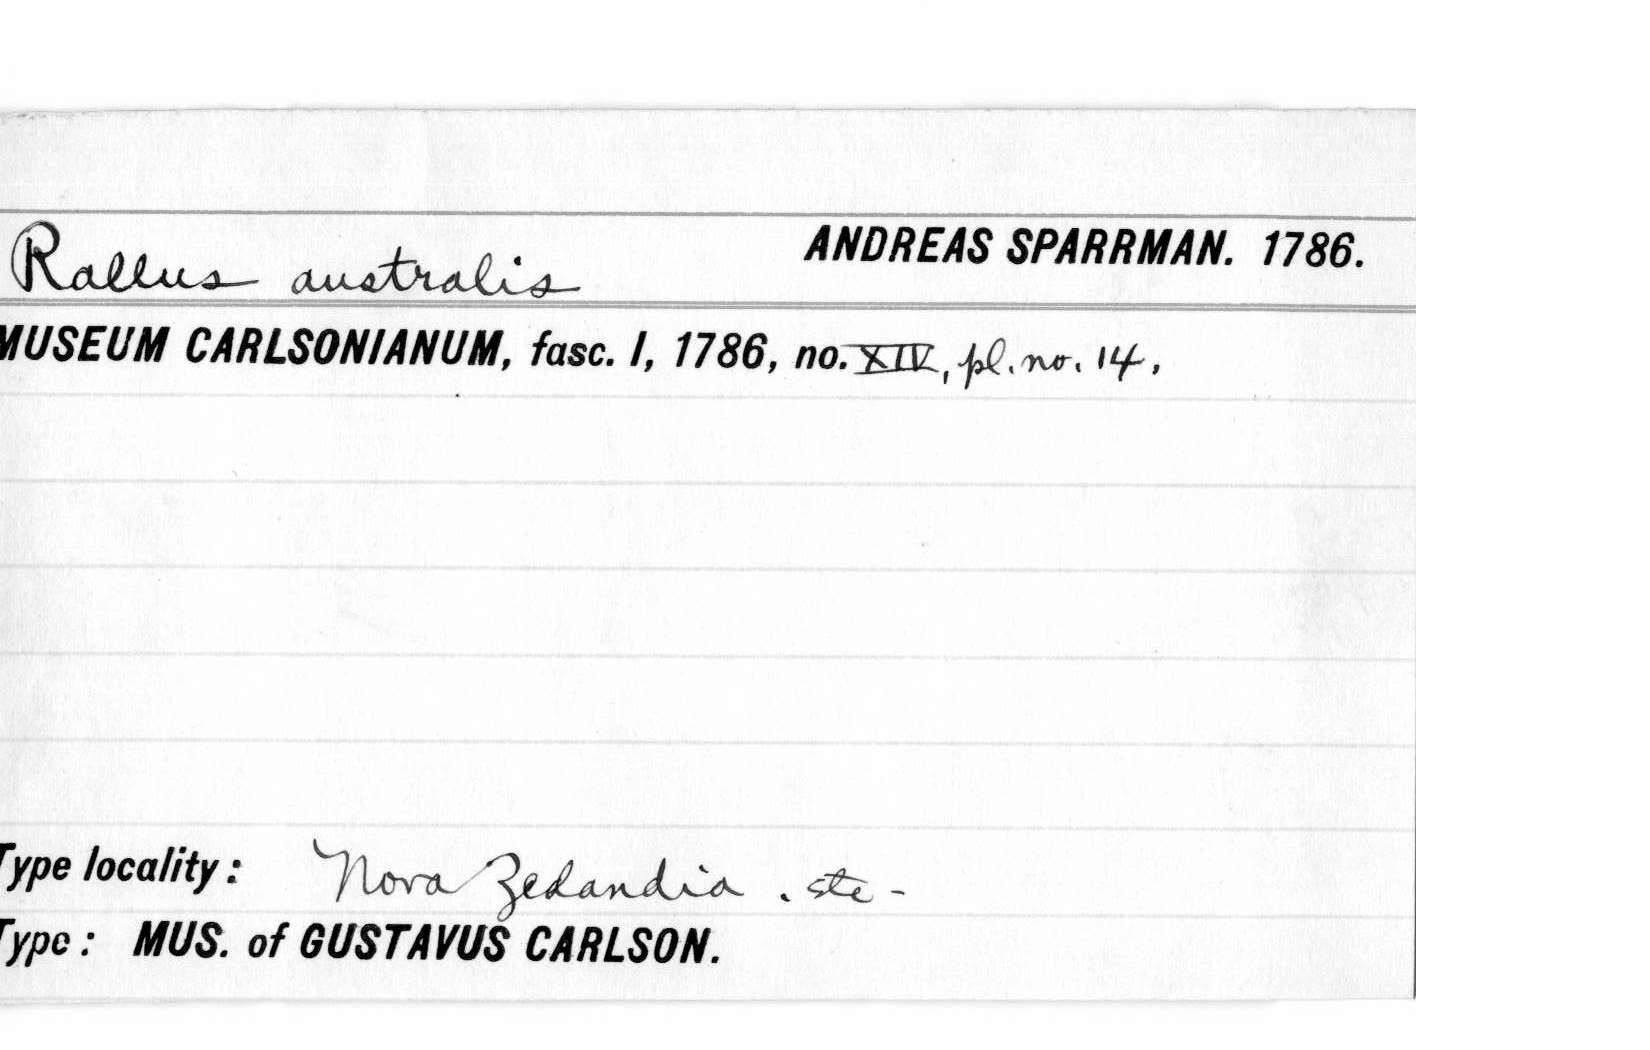 Rallus australis ANDREAS SPARRMAN. 1786.
MUSEUM CARLSONIANUM, fasc. I, 1786, no. XIV, pl. no. 14.
Type locality: Nova Zelandia . etc -
Type: MUS. of GUSTAVUS CARLSON.